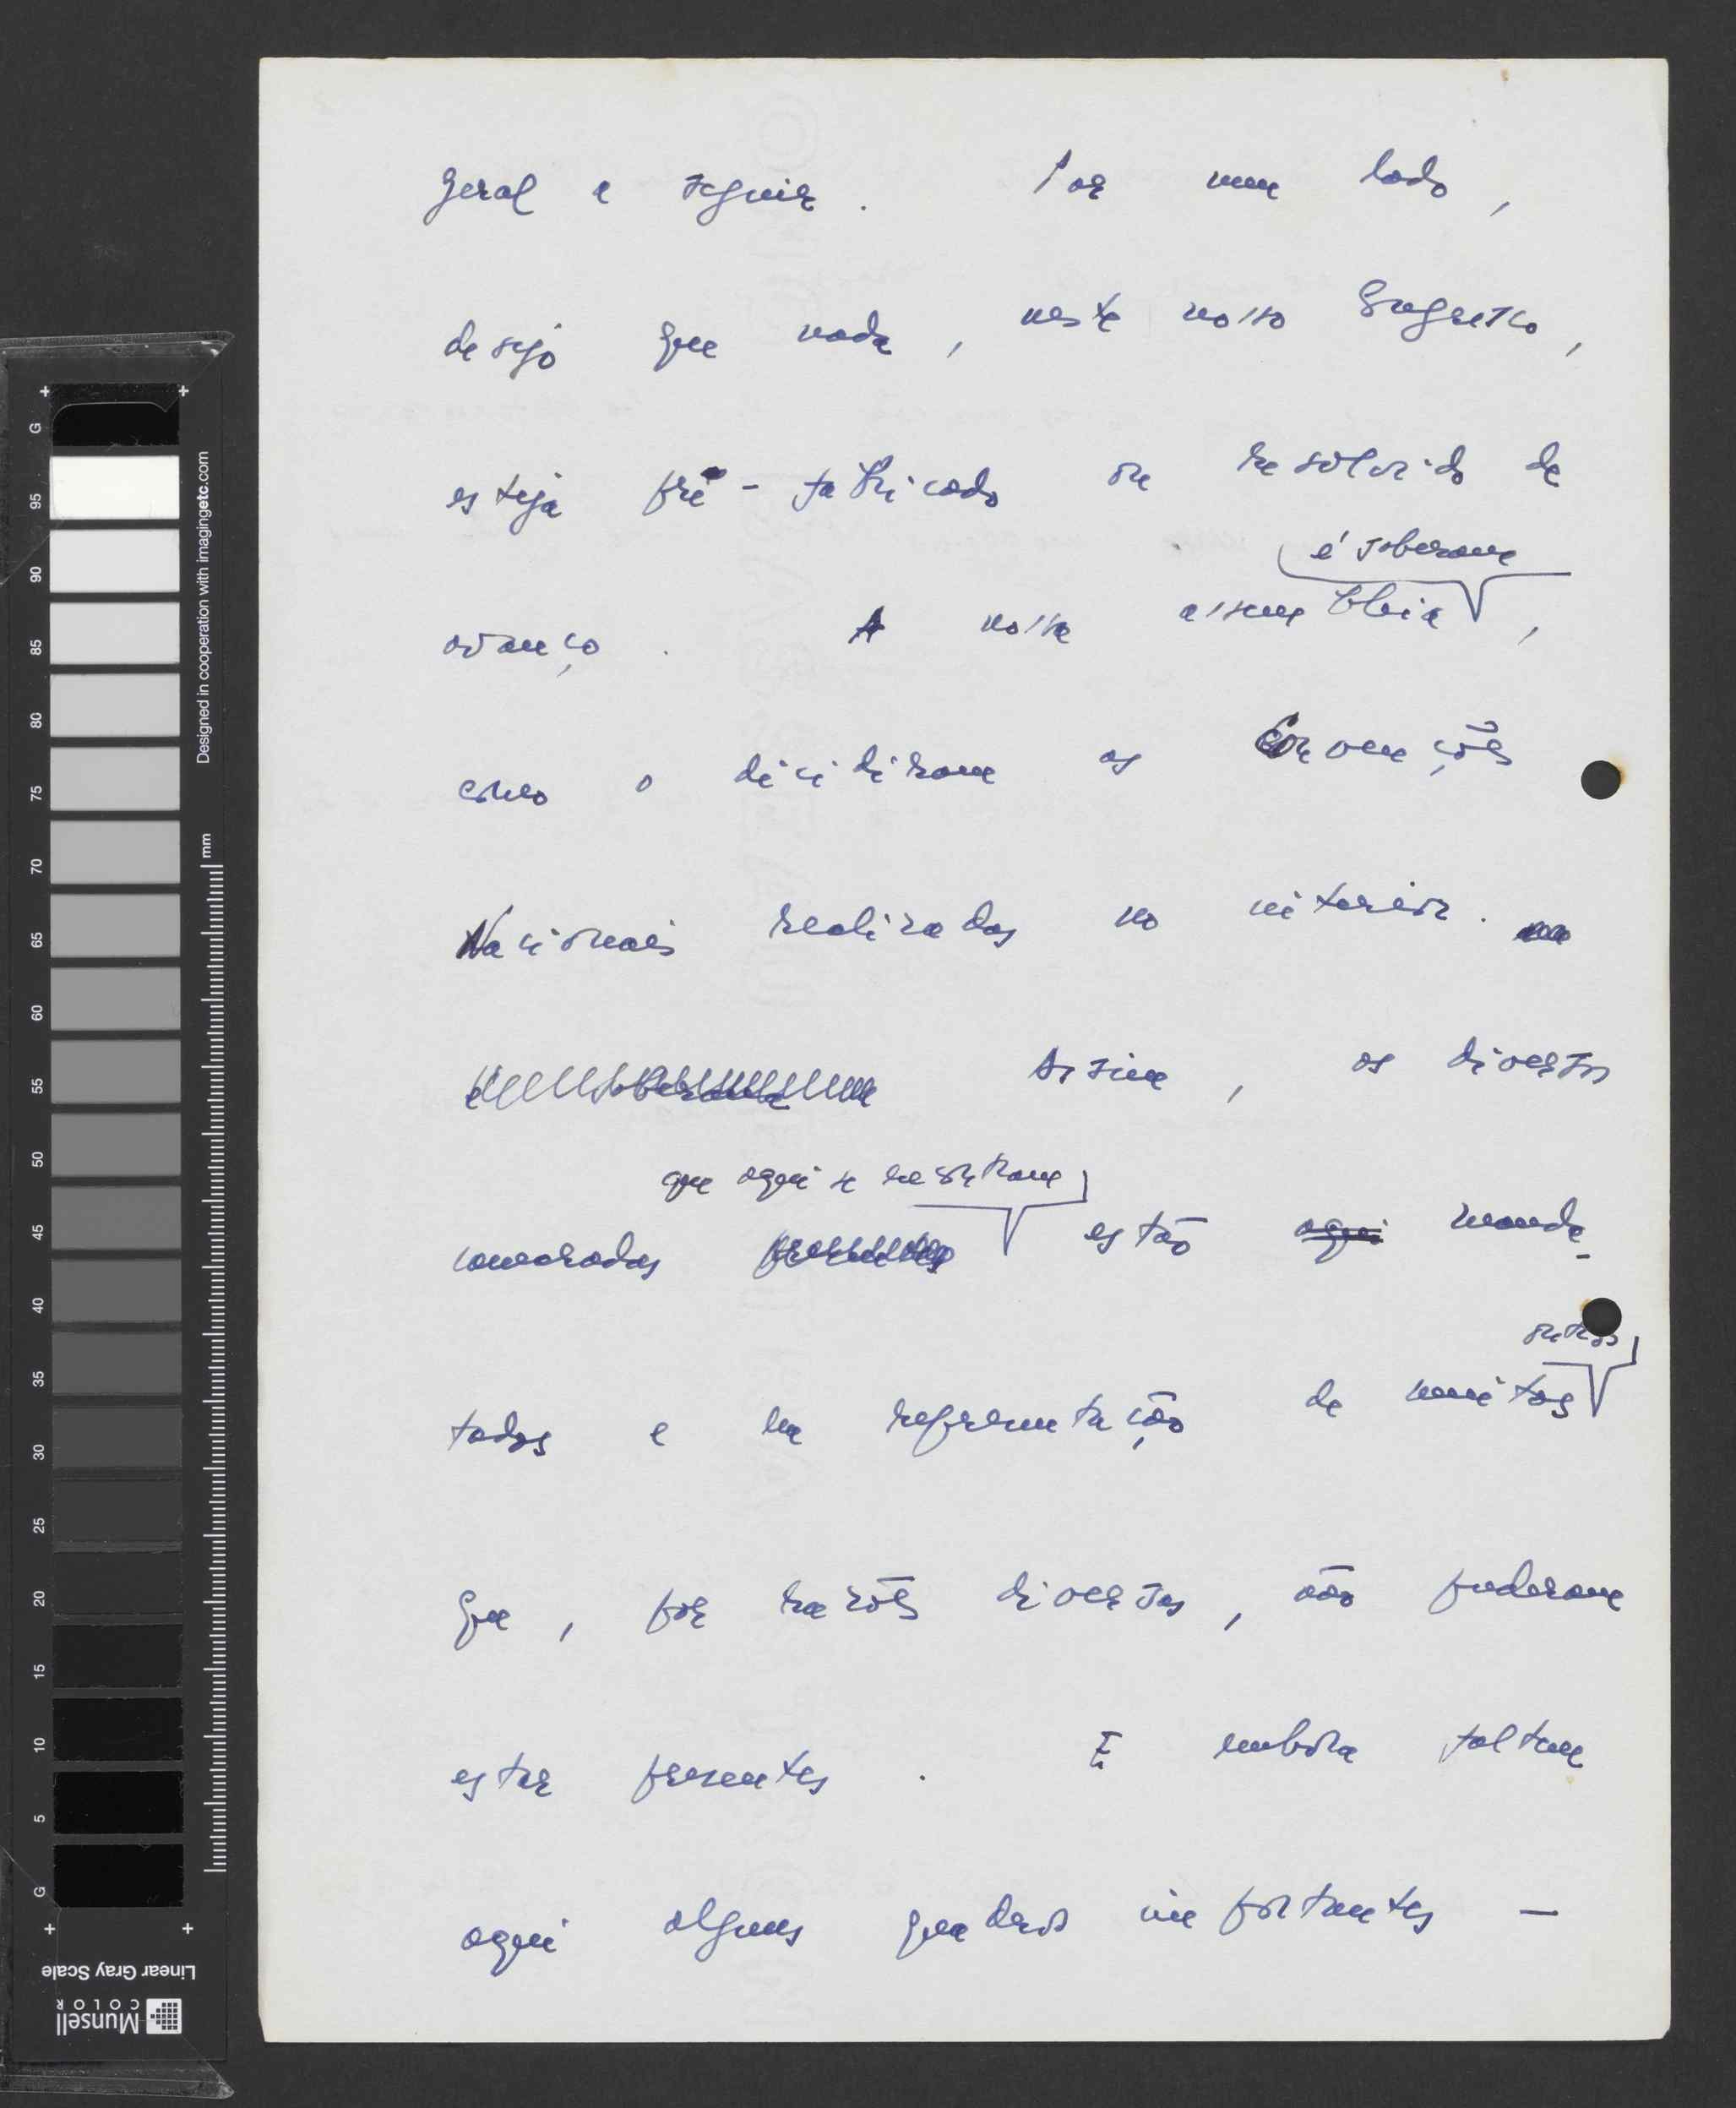 geral a seguir. Por um lado,
desejo que nada, neste nosso Congresso,
esteja pré-fabricado ou resolvido de
é soberana
avanço. A nossa assembleia,
como o decidiram as Convenções
Nacionais realizadas no interior.
é soberana Assim, os diversos
que aqui se encontram
camaradas presentes estão aqui manda-
outros
tados e em representação de muitos
que, por razões diversas, não puderam
estar presentes. E embora faltem
aqui alguns quadros importantes —
G
95
90
85
80
75
70
65
60
55
50
45
40
35
30
25
20
15
10
5
G
mm
Designed in cooperation with imagingetc.com
Linear Gray Scale
Munsell
COLOR